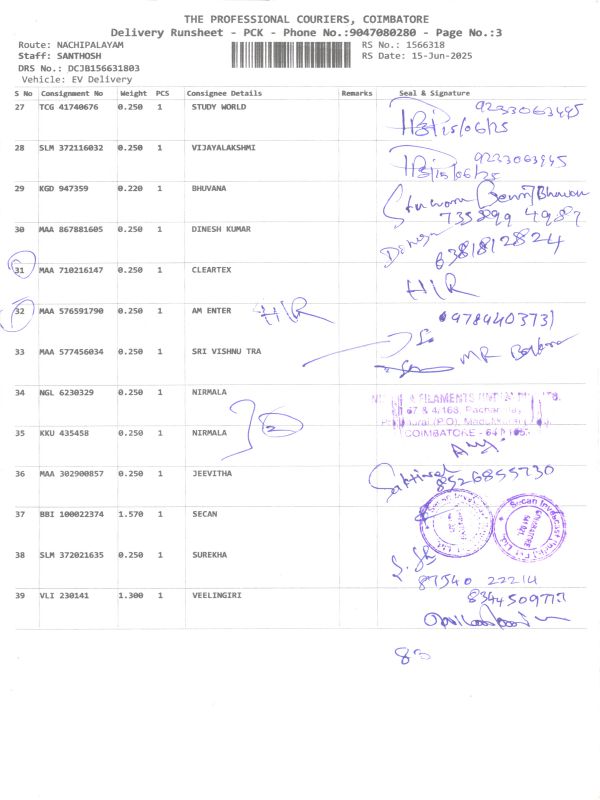 THE PROFESSIONAL COURIERS, COIMBATORE
Delivery Runsheet - PCK - Phone No.:9047080280 - Page No.:3
Route: NACHIPALAYAM
RS No.: 1566318
Staff: SANTHOSH
RS Date: 15-Jun-2025
DRS No.: DCJB156631803
Vehicle: EV Delivery
S No Consignment No Weight PCS Consignee Details Remarks Seal & Signature
27 TCG 41740676 0.250 1 STUDY WORLD
15/06/25
28 SLM 372116032 0.250 1 VIJAYALAKSHMI
15/06/25
29 KGD 947359 0.220 1 BHUVANA
30 MAA 867881605 0.250 1 DINESH KUMAR
6381812824
31 MAA 710216147 0.250 1 CLEARTEX H/R
32 MAA 576591790 0.250 1 AM ENTER H/R
33 MAA 577456034 0.250 1 SRI VISHNU TRA
MR
34 NGL 6230329 0.250 1 NIRMALA
FILAMENTS
67 & 4/163,
COIMBATORE
2
35 KKU 435458 0.250 1 NIRMALA
36 MAA 302900857 0.250 1 JEEVITHA
8526855730
37 BBI 100022374 1.570 1 SECAN
38 SLM 372021635 0.250 1 SUREKHA
87540 22214
39 VLI 230141 1.300 1 VEELINGIRI
83